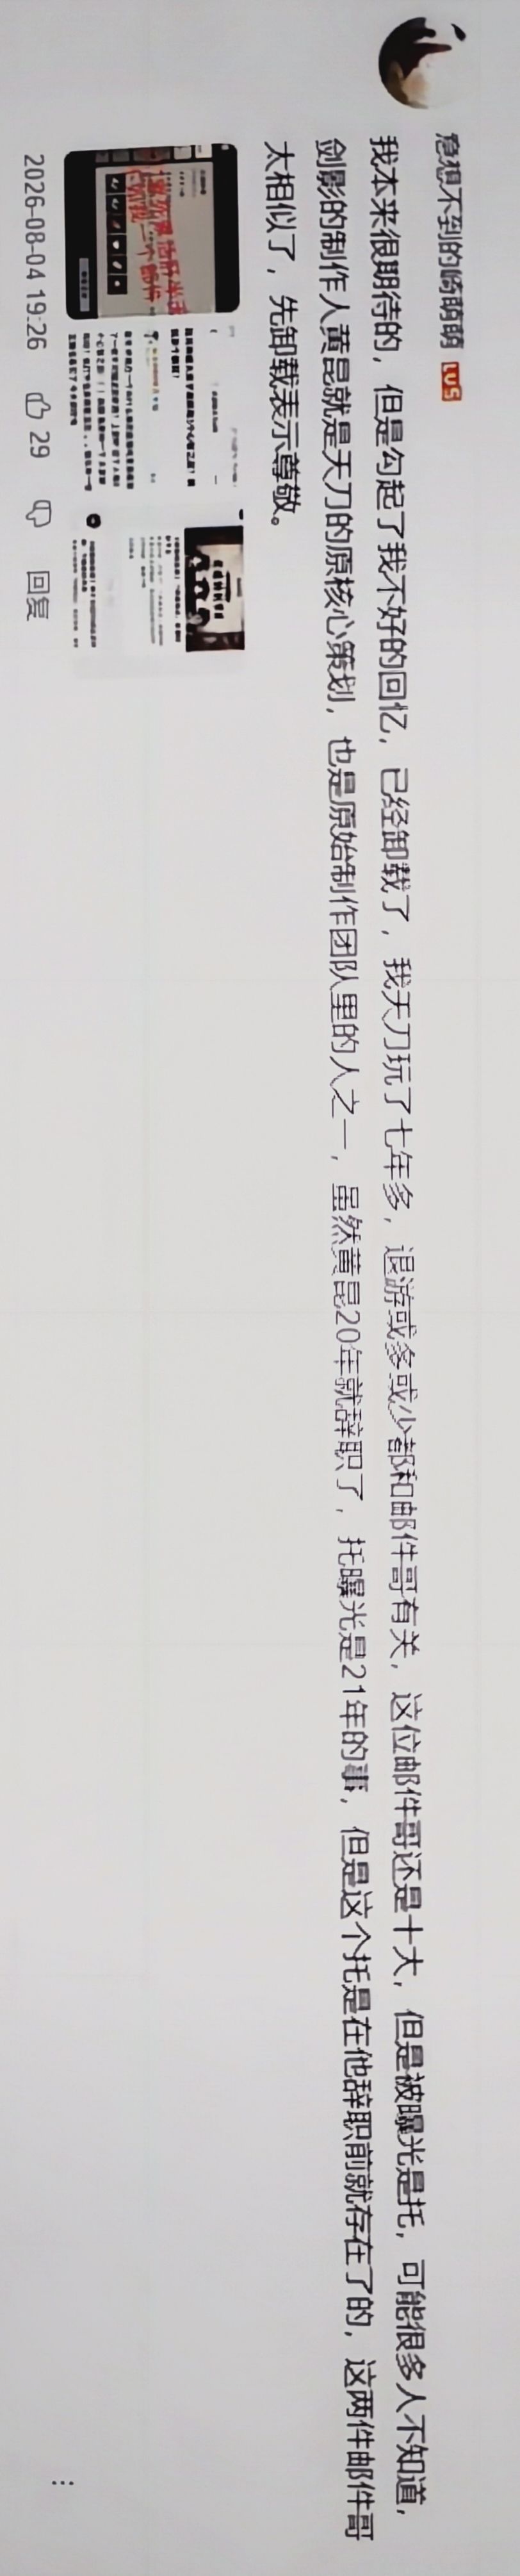 意想不到的崎萌萌 LV5
我本来很期待的，但是勾起了我不好的回忆，已经卸载了，我天刀玩了七年多，退游或多或少都和邮件哥有关，这位邮件哥还是十大，但是被曝光是托，可能很多人不知道，
剑影的制作人黄昆就是天刀的原核心策划，也是原始制作团队里的人之一，虽然黄昆20年就辞职了，托曝光是21年的事，但是这个托是在他辞职前就存在了的，这两件邮件哥
太相似了，先卸载表示尊敬。
2026-08-04 19:26 29 回复